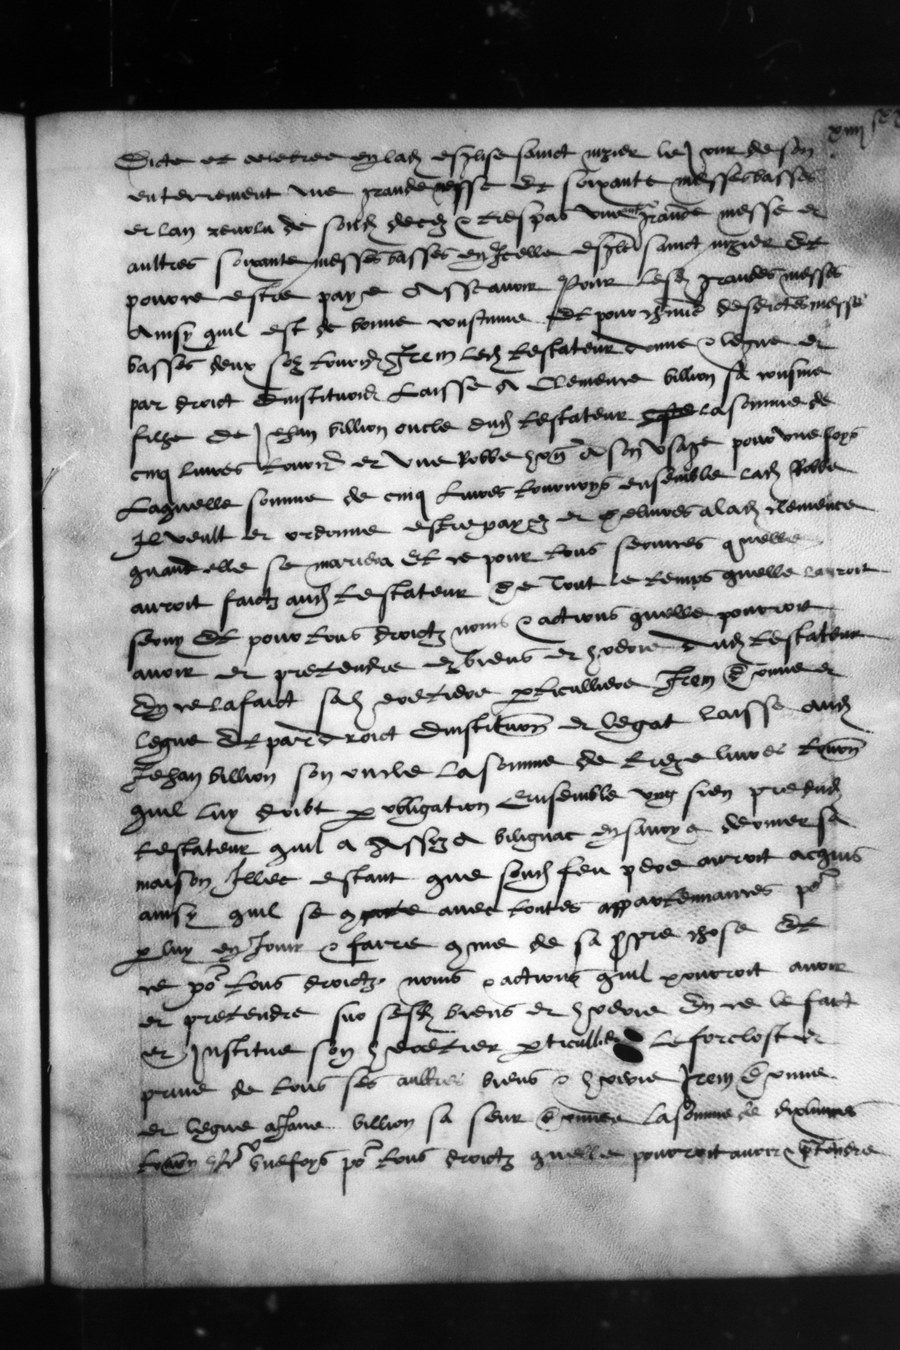 Dicte et celebree en lad esglise sainct nizier le Jour de son
enterrement une grande messe et soixante messes basses
et lan revolu de sond deces & trespas une grande messe et
aultres soixante messes basses en Icelle esglise sainct nizier et
pouvre estre paye Assavoir Pour lesd grandes messes
Ainsy quil est de bonne coustume Et pour chune desdictes messes
basses deux solz tournois Item led testateur donne & legue et
par droict dinstitution Laisse A Clemence billion sa cousine
fille de Jehan billion oncle dud testateur la somme de
cinq livres tournois et une Robbe a son Usage pour une foys
Laquelle somme de cinq Livres tournoys ensemble lad Robbe
Il veult et ordonne estre payez et delivres a lad clemence
quand elle se mariera Et ce pour tous services quelle
auroit faictz aud testateur de tout le temps quelle lauroit
servy Et pour tous droictz noms & actions quelle pourroit
avoir et pretendre ez biens et hoirie dud testateur
En ce la faict sad heritiere particulliere Item donne et
legue Et par droict dinstitution et legat laisse aud
Jehan billion son oncle la somme de treze livres tournois
quil luy doibt par obligation Ensemble ung sien pre dud
testateur quil a Assis A bilignac en savoye dernier sa
maison Illec estant que sond feu pere auroit acquis
ainsy quil se comporte avec toutes appartenances pour
par luy en Jouir & faire comme de sa propre chose Et
ce pour tous droictz noms & actions quil pourroit avoir
et pretendre sur sesd biens et hoirie En ce le faict
et Institue son heritier particullier Le forclost et
prive de tous ses aultres biens & hoirie Item donne
et legue a Jane billion sa seur la somme de dix livres
tournois une foys pour tous droictz quelle pourroit avoir & pretendre